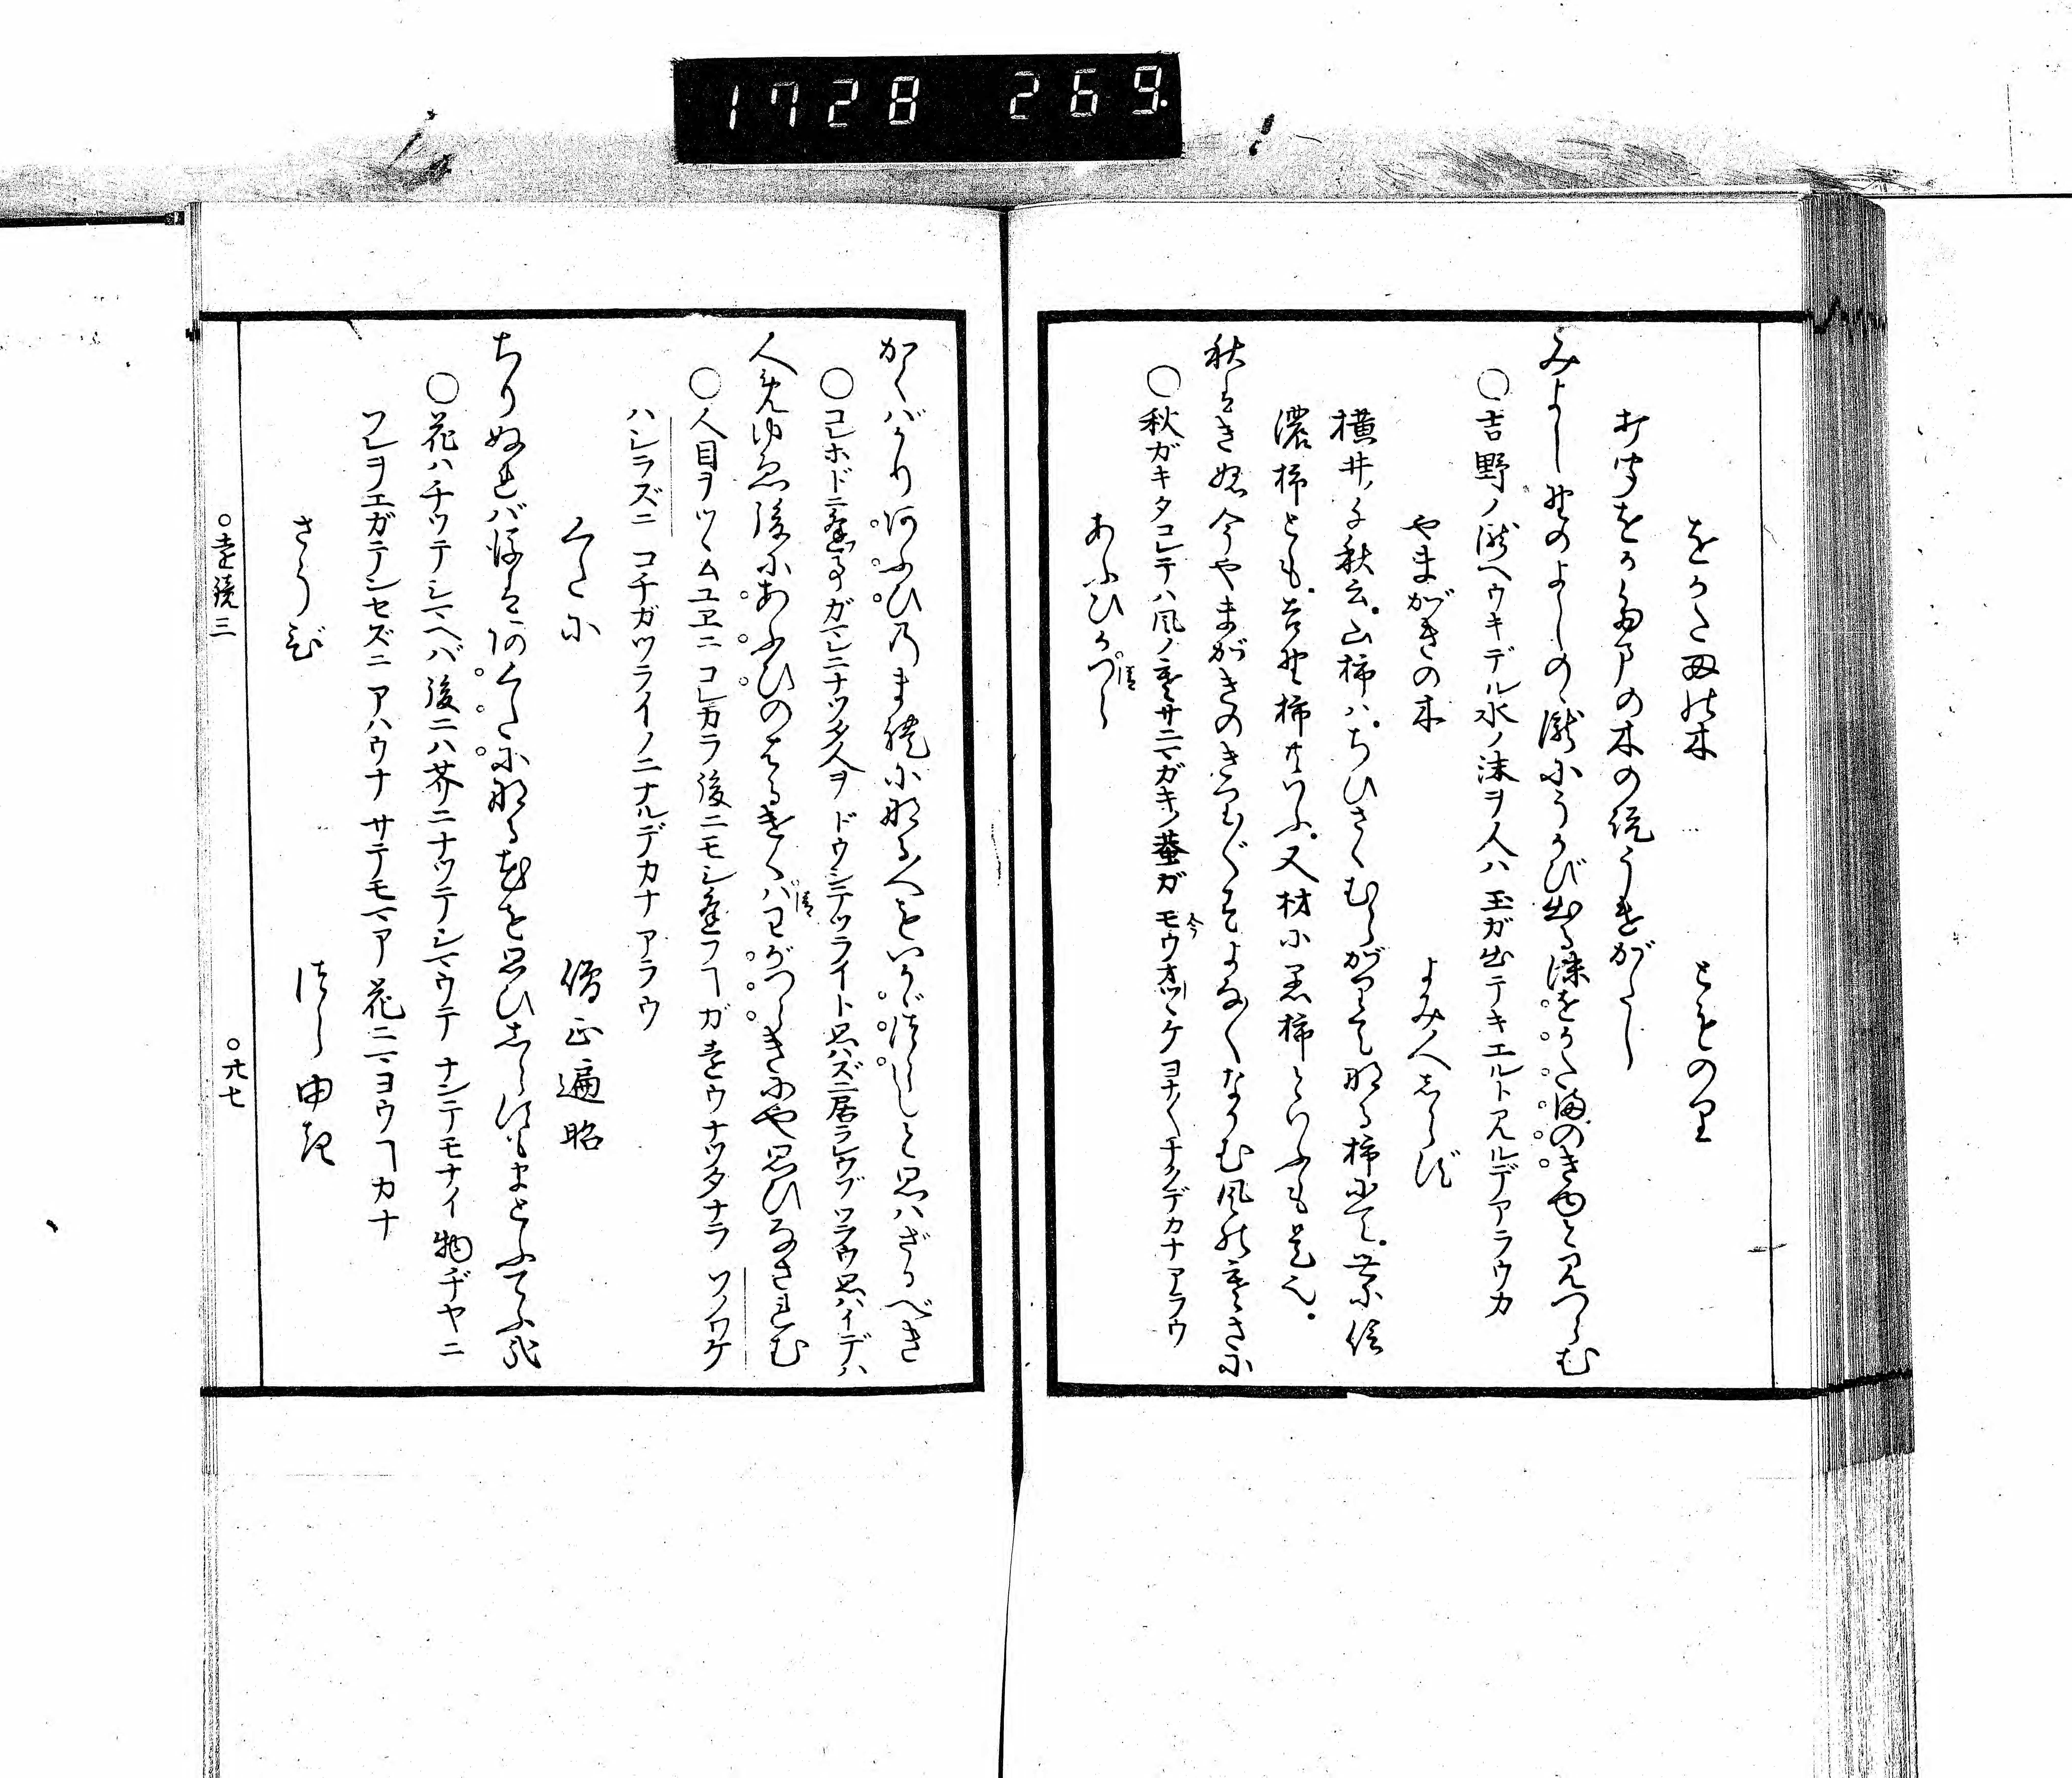 1728 269
をがたまの木　とものり
打聞をがたまの木の説うけがたし
みよし野のよしのゝ瀧にうかび出る沫をかたまのきゆと見つらむ
○吉野ノ瀧ヘウキデル水ノ沫ヲ人ハ 玉ガ出テキエルト見ルデアラウカ
やまがきの木　よみ人しらず
横井ノ千秋云。山柿ハ。ちひさくむらがりてなる柿にて。世に信
濃柿とも。吉野柿ともいふ。又材に黒柿といふも是也。
秋はきぬ今やまがきのきりぎりすよなよななかむ風の寒さに
○秋ガキタコレテハ風ノ寒サニマガキノ蛬ガ モウ今オッツケヨナ〳〵ナクデカナアラウ
あふひかつら清
かくばかりあふひのまれになる人をいかゞつらしと思はざるべき
○コレホドニ逢事ガマレニナツタ人ヲ ドウシテツライト思ハズニ居ラレウゾ ツラウ思ハイデハ
人めゆゑ後にあふひのはるけくばわがつらきにや思ひなされむ
清
○人目ヲツヽムユヱニ コレカラ後ニモシ逢フヿガ遠ウナツタナラ ソノワケ
ハシラズニ コチガツライノニナルデカナ アラウ
くたに　僧正遍昭
ちりぬれば後はあくたになる花を思ひしらずもまどふてふ哉
○花ハチツテシマヘバ 後ニハ芥ニナツテシマウテ ナンデモナイ物ヂヤニ
ソレヲエガテンセズニ アハウナ サテモマア 花ニマヨウヿカナ
さうび　つらゆき
○遠鏡三　○六七